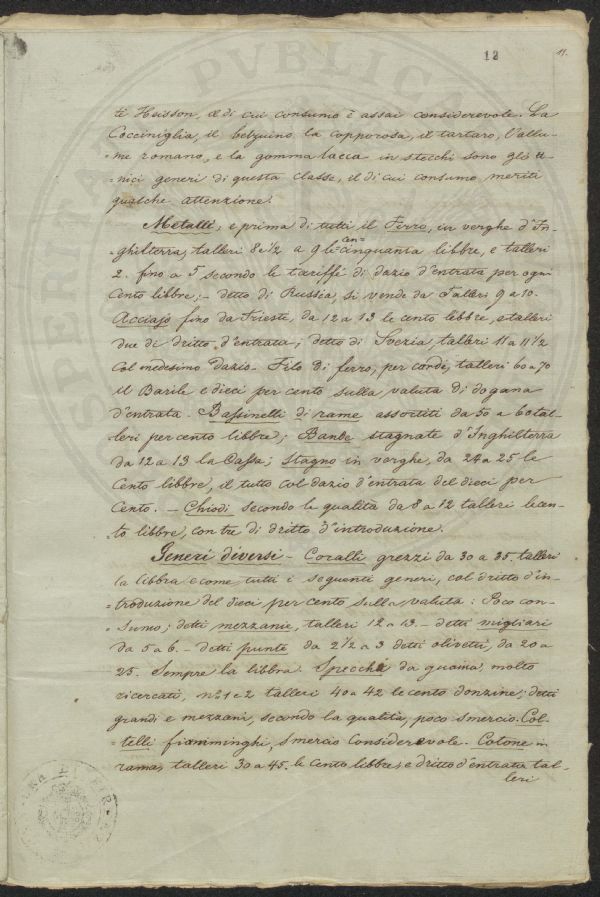 12
11.
te Heisson, il di cui consumo è assai considerevole. La
Cocciniglia, il belzuino la copporosa, il tartaro, l'allu-
=me romano, e la gomma lacca in stecchi sono gli u-
=nici generi di questa classe, il di cui consumo meriti
qualche attenzione.
Metalli, e prima di tutti il Ferro, in verghe d'In-
=ghilterra, talleri 8 e 1/2 a 9 le cen=
=cinquanta libbre, e talleri
2. fino a 5 secondo le tariffe di dazio d'entrata per ogni
Cento libbre; - detto di Russia, si vende da Talleri 9 a 10.
Acciajo fino da Trieste, da 12 a 13 le cento libbre, e talleri
due di dritto d'entrata; detto di Svezia, talleri 11 a 11 1/2
Col medesimo dazio - Filo di ferro, per corde, talleri 60 a 70
il Barile e dieci per cento sulla valuta di dogana
d'entrata - Bassinelli di rame assortiti da 50 a 60 tal-
leri per cento libbre; Bande stagnate d'Inghilterra
da 12 a 13 la Cassa; Stagno in verghe, da 24 a 25 le
Cento libbre, il tutto col dazio d'entrata del dieci per
Cento. - Chiodi secondo la qualità da 8 a 12 talleri le cen-
to libbre, con tre di dritto d'introduzione.
Generi diversi - Coralli grezzi da 30 a 35. talleri
la libbra e come tutti i seguenti generi, col dritto d'in-
=troduzione del dieci per cento sulla valuta: Poco con-
=sumo; detti mezzanie, talleri 12 a 13 - detti migliari
da 5 a 6. - detti punte da 2 1/2 a 3 detti olivetti, da 20 a
25. Sempre la libbra. Specchi da guaina, molto
ricercati, n° 1 e 2 talleri 40 a 42 le cento donzine; detti
grandi e mezzani, secondo la qualità, poco smercio. Col-
=telli fiamminghi, smercio considerevole. Cotone in
rama, talleri 30 a 45. le Cento libbre, e dritto d'entrata tal-
leri